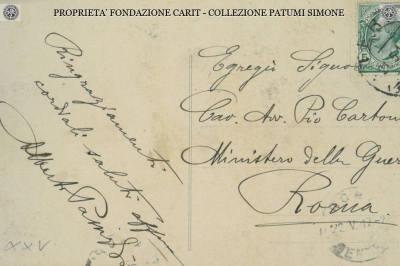 PROPRIETA' FONDAZIONE CARIT - COLLEZIONE PATUMI SIMONE
Ringraziamenti
cordiali saluti
Alberto
Egregio Signor
Cav. Avv. Pio
Ministero della Guer
Roma
XXV